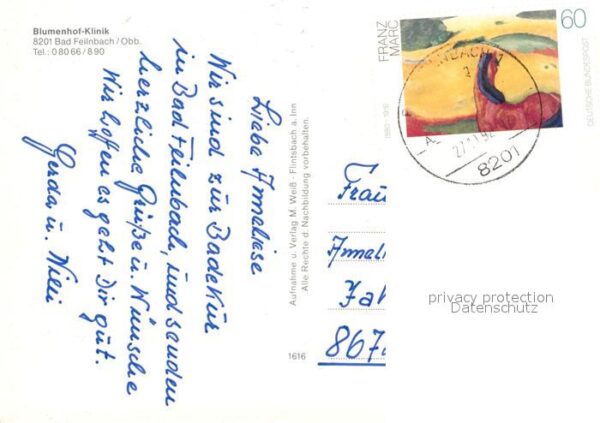 Blumenhof-Klinik
8201 Bad Feilnbach / Obb.
Tel.: 0 80 66 / 8 90
Liebe Anneliese
Wir sind zur Badekur
in Bad Feilnbach, und senden
herzliche Grüße u. Wünsche
Wir hoffen es geht Dir gut.
Gerda u. Willi
Aufnahme u. Verlag M. Weiß · Flintsbach a. Inn
Alle Rechte d. Nachbildung vorbehalten.
1616
FRANZ
MARC
1880-1916
60
DEUTSCHE BUNDESPOST
8201
Frau
Annel
867
privacy protection
Datenschutz